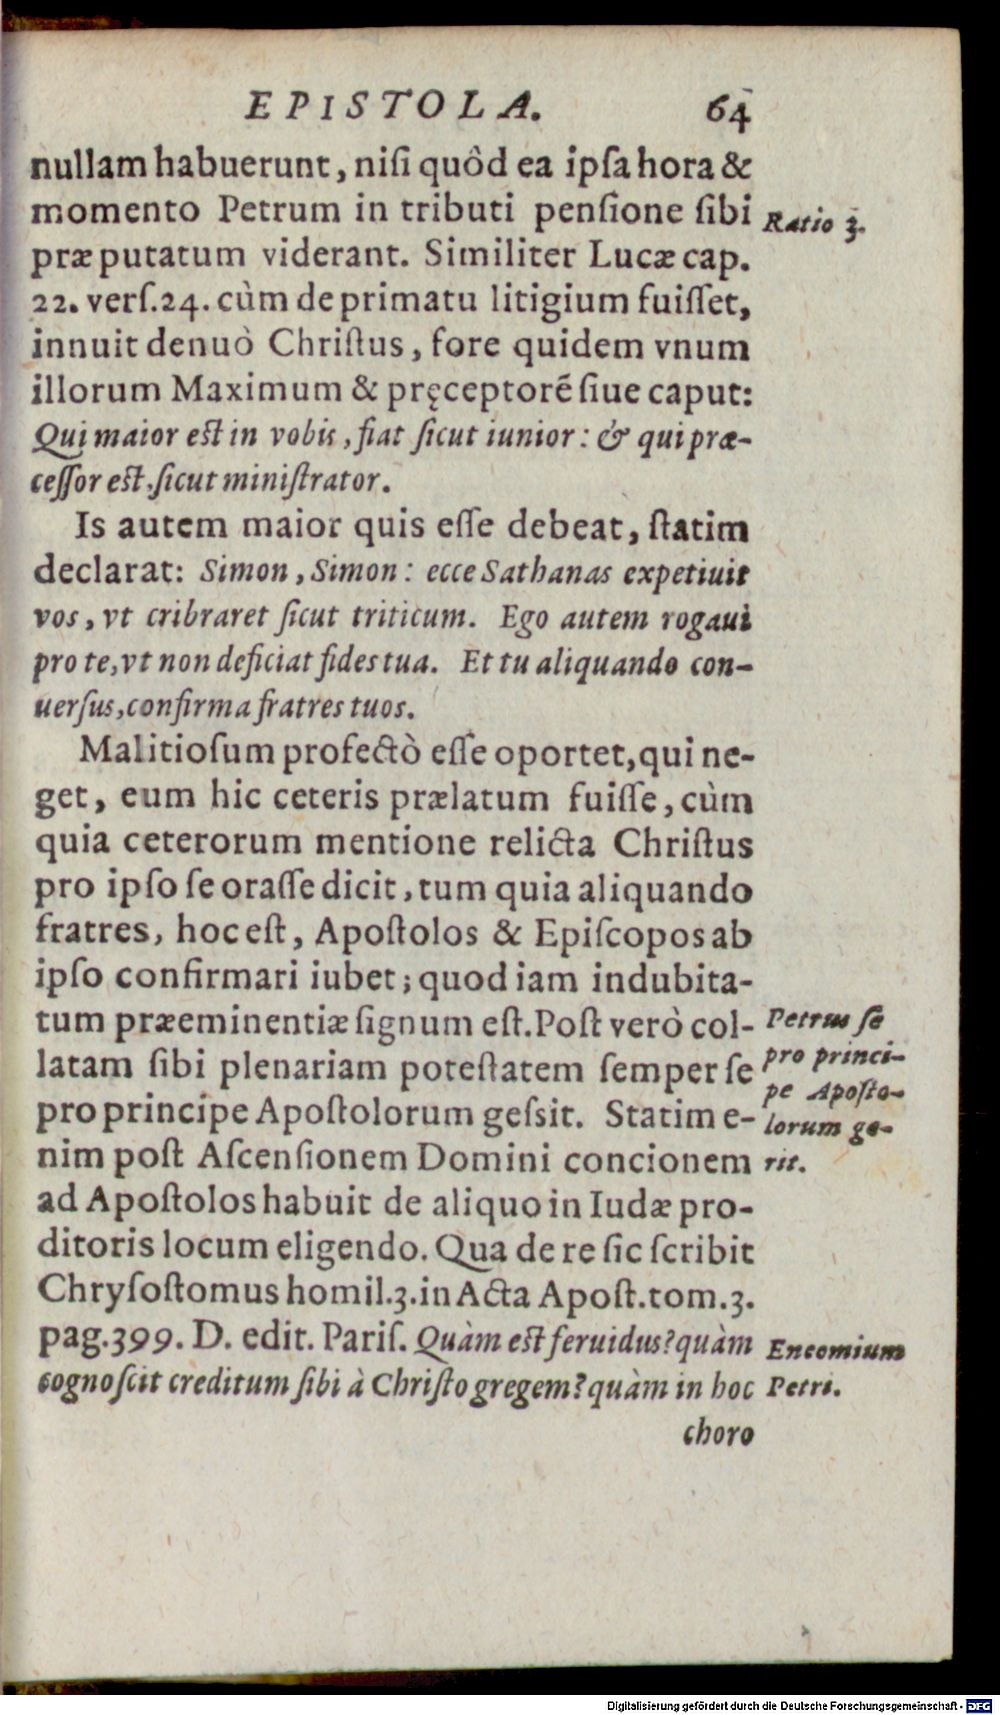 EPISTOLA. 64
nullam habuerunt, niſi quôd ea ipſa hora &
momento Petrum in tributi penſione ſibi
Ratio 3.
præputatum viderant. Similiter Lucæ cap.
22. verſ.24. cùm de primatu litigium fuiſſet,
innuit denuò Chriſtus, fore quidem vnum
illorum Maximum & pręceptorē ſiue caput:
Qui maior eſt in vobis, fiat ſicut iunior: & qui præ-
ceſſor eſt, ſicut miniſtrator.
Is autem maior quis eſſe debeat, ſtatim
declarat: Simon, Simon: ecce Sathanas expetiuit
vos, vt cribraret ſicut triticum. Ego autem rogaui
pro te, vt non deficiat fides tua. Et tu aliquando con-
uerſus, confirma fratres tuos.
Malitioſum profectò eſſe oportet, qui ne-
get, eum hic ceteris prælatum fuiſſe, cùm
quia ceterorum mentione relicta Chriſtus
pro ipſo ſe oraſſe dicit, tum quia aliquando
fratres, hoc eſt, Apoſtolos & Epiſcopos ab
ipſo confirmari iubet; quod iam indubita-
tum præeminentiæ ſignum eſt. Poſt verò col-
latam ſibi plenariam poteſtatem ſemper ſe
pro principe Apoſtolorum geſsit. Statim e-
nim poſt Aſcenſionem Domini concionem
Petrus ſe
pro princi-
pe Apoſto-
lorum ge-
rit.
ad Apoſtolos habuit de aliquo in Iudæ pro-
ditoris locum eligendo. Qua de re ſic ſcribit
Chryſoſtomus homil.3. in Acta Apoſt. tom.3.
pag.399. D. edit. Pariſ. Quàm eſt feruidus? quàm
cognoſcit creditum ſibi à Chriſto gregem? quàm in hoc
Encomium
Petri.
choro
Digitalisierung gefördert durch die Deutsche Forschungsgemeinschaft - DFG